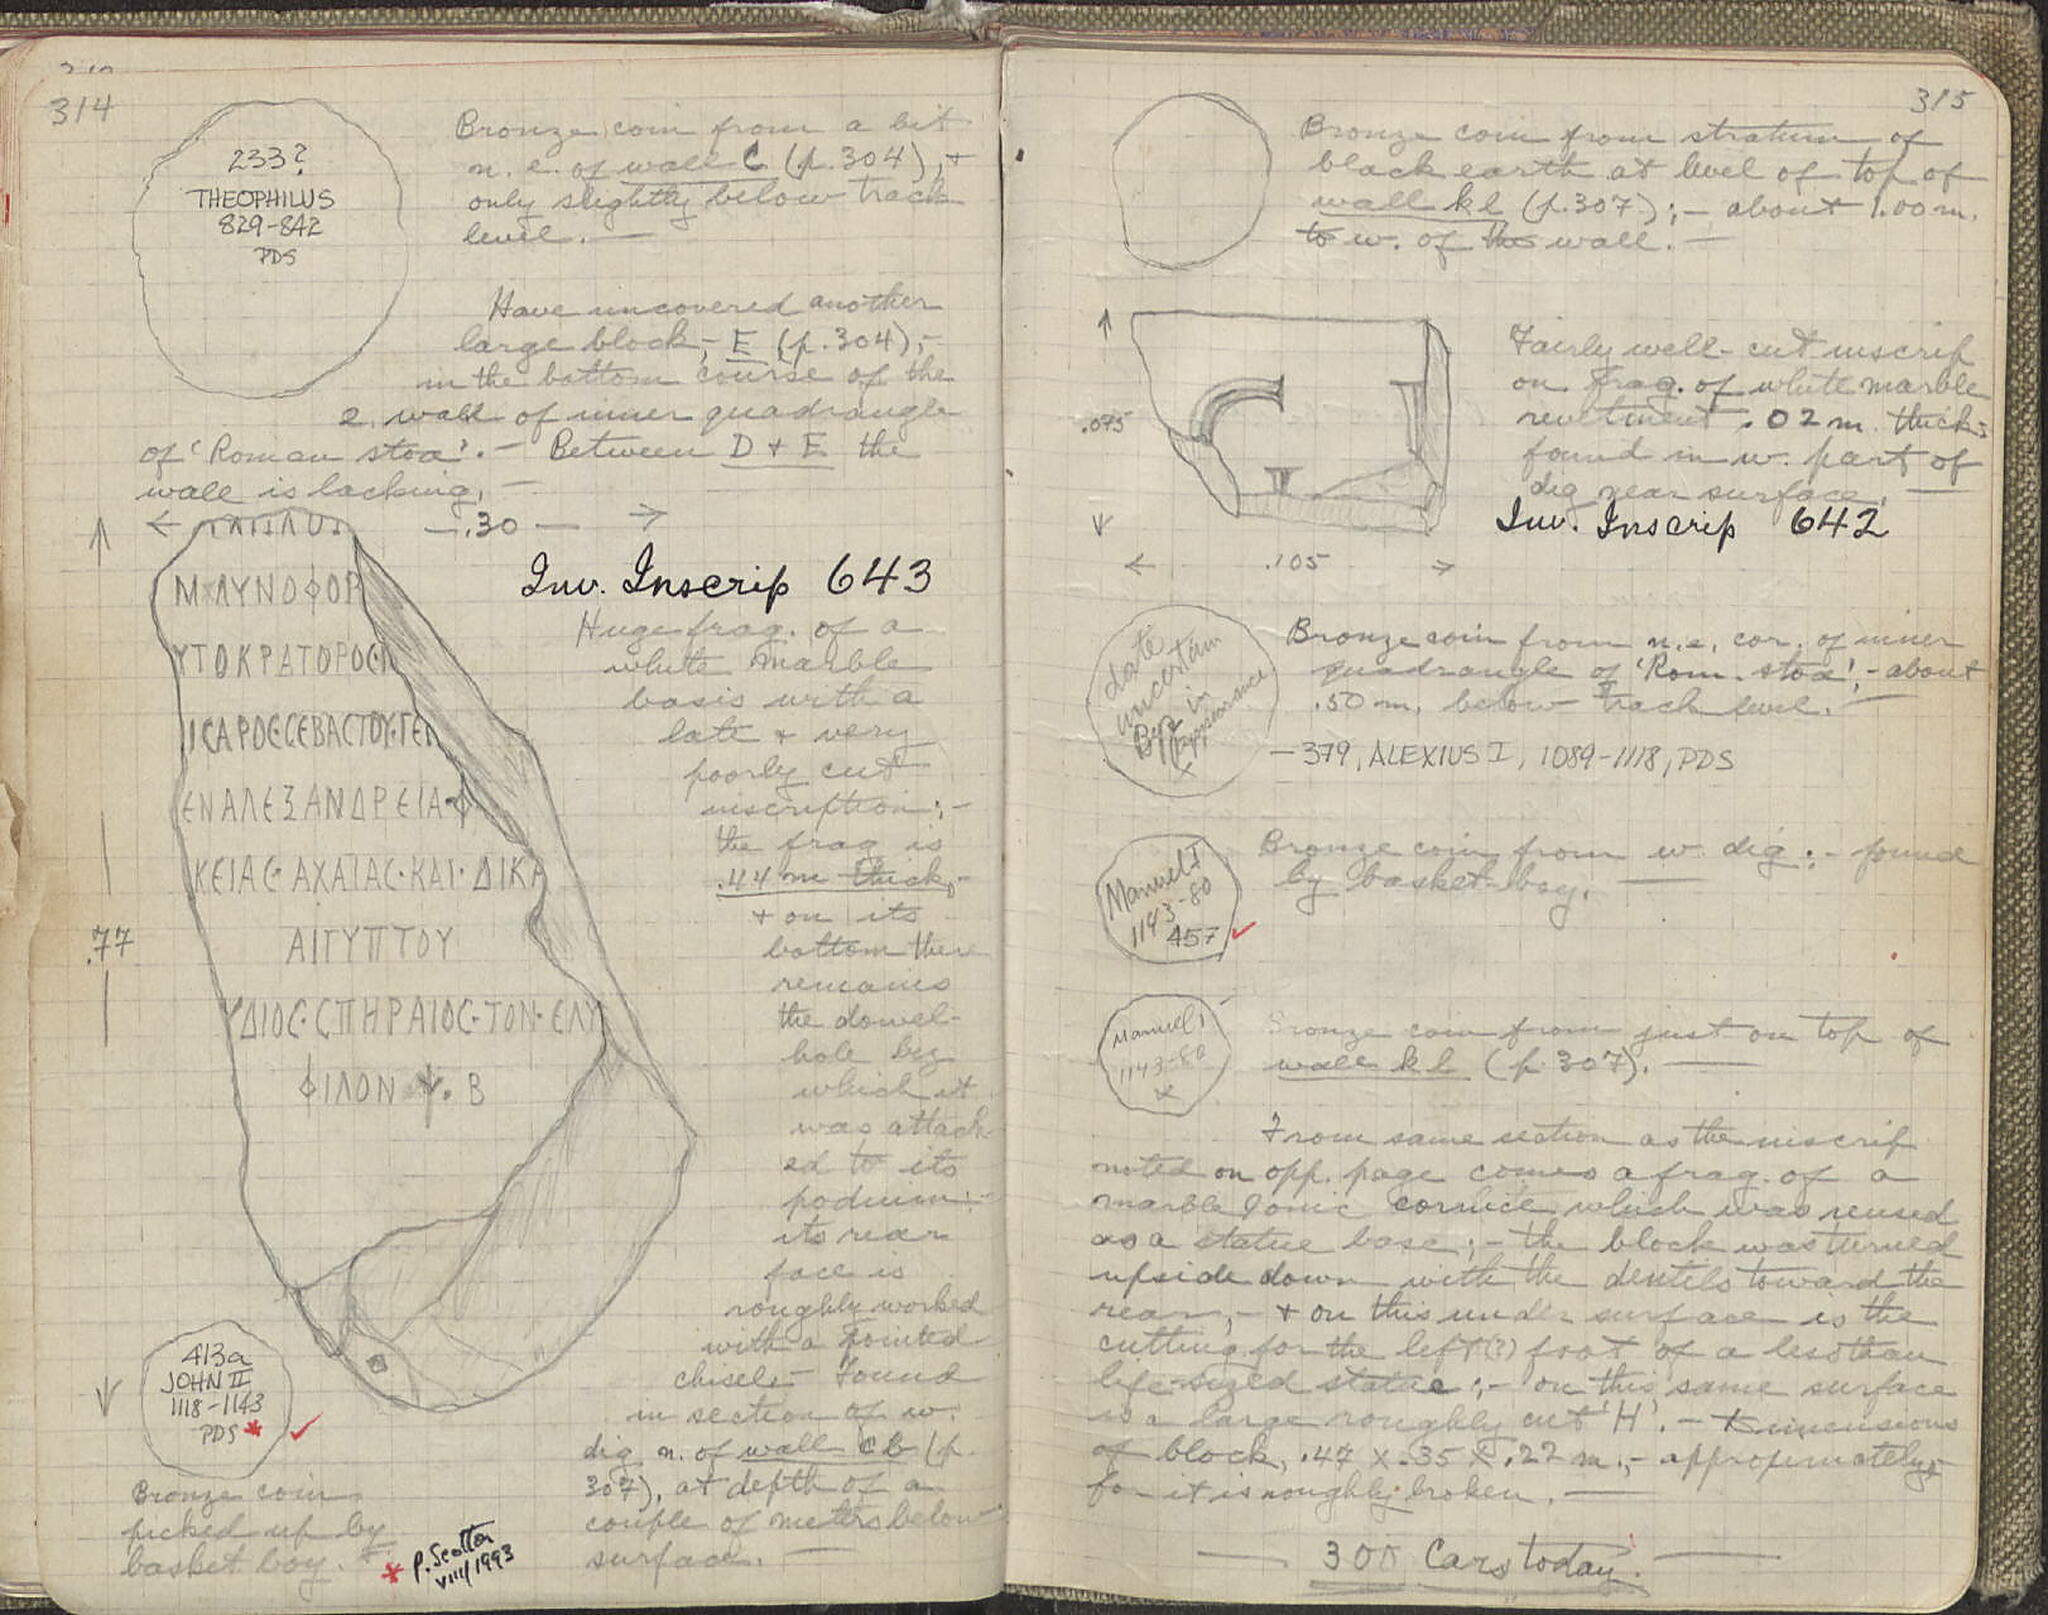 314
233?
THEOPHILUS
829-842
PDS
Bronze coin from a bit
n. e. of wall C (p. 304), +
only slightly below track
level. —
Have uncovered another
large block, - E (p. 304); -
in the bottom course of the
e. wall of inner quadrangle
of 'Roman stoa'. — Between D + E the
wall is lacking. —
.30
ΜΛΥΝΟΦΟΡ
ΥΤΟΚΡΑΤΟΡΟϹ
ΙϹΑΡΟϹϹΕΒΑϹΤΟΥ·ΓΕΡ
ΕΝΑΛΕΞΑΝΔΡΕΙΑ
ΚΕΙΑϹ·ΑΧΑΙΑϹ·ΚΑΙ·ΔΙΚΑ
ΑΙΓΥΠΤΟΥ
ΥΔΙΟϹ·ϹΠΗΡΑΙΟϹ·ΤΟΝ·ΕΛΥ
ΦΙΛΟΝ Ψ. Β
.77
Inv. Inscrip 643
Huge frag. of a
white marble
basis with a
late + very
poorly cut
inscription; -
the frag is
.44 m thick, -
+ on its
bottom there
remains
the dowel-
hole by
which it
was attach-
ed to its
podium; -
its rear
face is
roughly worked
with a pointed
chisel. - Found
in section of w.
dig n. of wall cb (p.
307), at depth of a
couple of meters below
surface. —
413a
JOHN II
1118-1143
PDS *
Bronze coin
picked up by
basket boy. —
* P. Scotton
VIII/1993
315
Bronze coin from stratum of
black earth at level of top of
wall kl (p. 307); - about 1.00 m.
to w. of the wall. —
.075
.105
Fairly well-cut inscrip
on frag. of white marble
revetment .02 m. thick;
found in w. part of
dig near surface. —
Inv. Inscrip 642
date
uncertain
Byz in
appearance
x
Bronze coin from n. e. cor. of inner
quadrangle of 'Rom. stoa', - about
.50 m. below track level. —
— 379, ALEXIUS I, 1089-1118, PDS
Manuel I
1143-80
457
Bronze coin from w. dig; - found
by basket-boy. —
Manuel I
1143-80
x
Bronze coin from just on top of
wall kl (p. 307). —
From same section as the inscrip
noted on opp. page comes a frag. of a
marble Ionic cornice which was reused
as a statue base; - the block was turned
upside down with the dentils toward the
rear, - + on this under surface is the
cutting for the left(?) foot of a less than
life-sized statue; - on this same surface
is a large roughly cut 'H'. - Dimensions
of block, .47 x .35 x .22 m., - approximately,
for it is roughly broken. —
— 300 Cars today. —